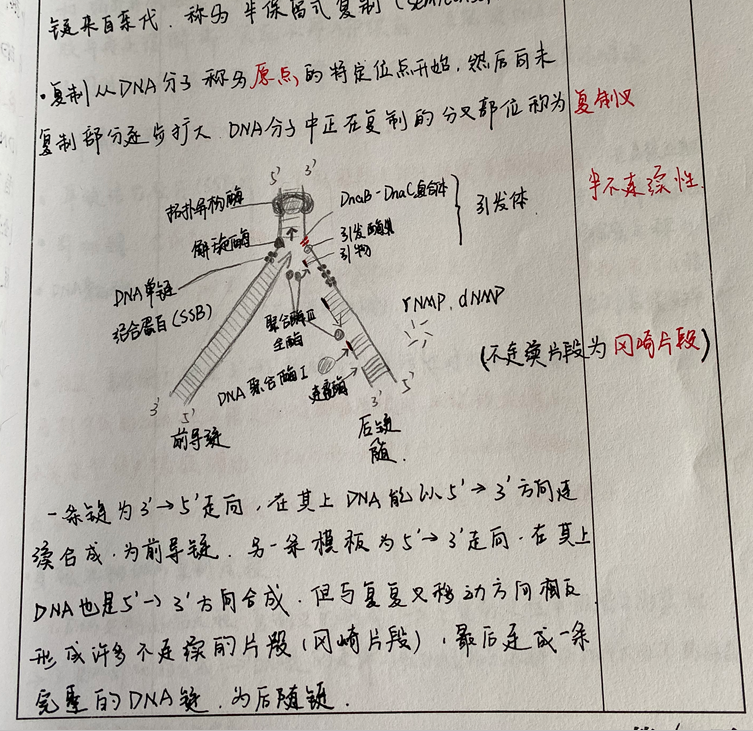 链来自亲代，称为半保留式复制（semicons
·复制从DNA分子称为原点的特定位点开始，然后向未
复制部分逐步扩大，DNA分子中正在复制的分叉部位称为复制叉
半不连续性.
5' 3'
拓扑异构酶
DnaB-DnaC复合体
引发体.
解旋酶
引发酶
引物
DNA单链
结合蛋白(SSB)
rNMP, dNMP
聚合酶Ⅲ
全酶
(不连续片段为冈崎片段)
DNA聚合酶I
连接酶
3' 5'
3' 5'
前导链
后链
随.
一条链为3'→5'走向，在其上DNA能以5'→3'方向连
续合成，为前导链.另一条模板为5'→3'走向.在其上
DNA也是5'→3'方向合成，但与复复叉移动方向相反
形成许多不连续的片段(冈崎片段)，最后连成一条
完整的DNA链，为后随链.